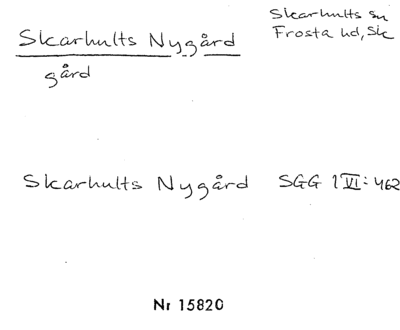 Skarhults Nygård
gård
Skarhults sn
Frosta hd, Sk
Skarhults Nygård SGG 1 VI: 462
Nr 15820